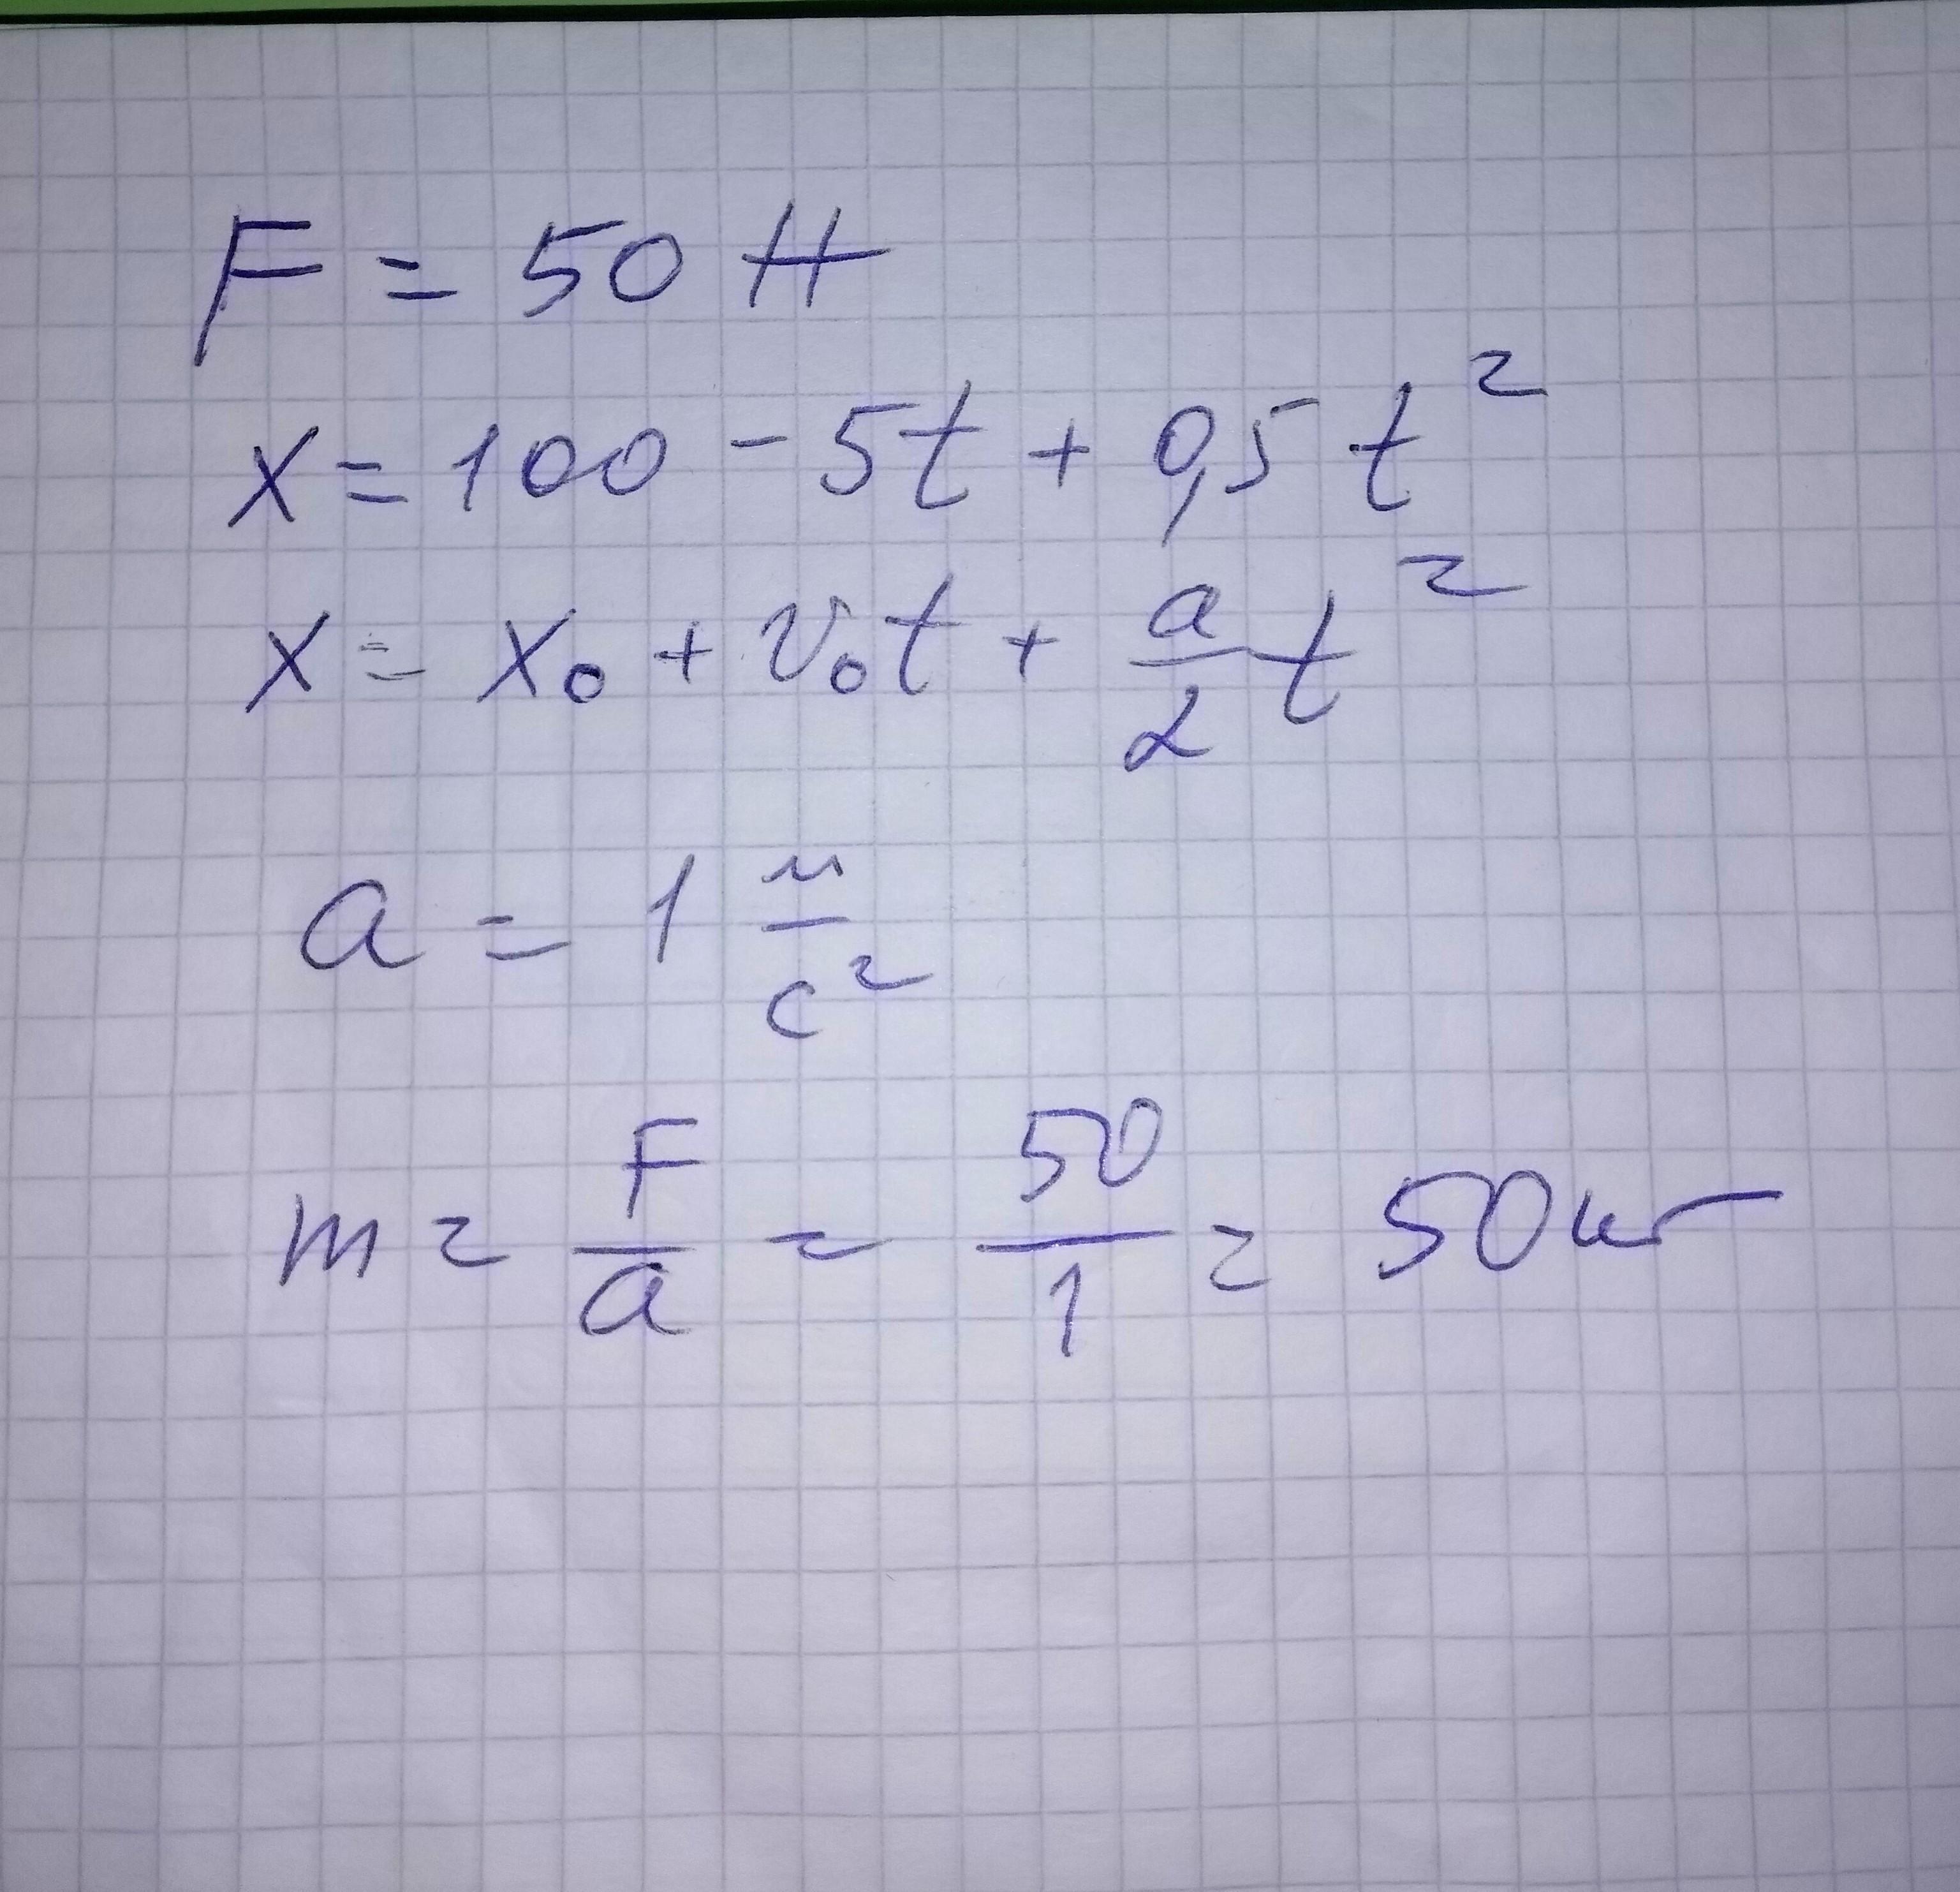 F = 50 Н
x = 100 - 5t + 0,5 t²
x = x₀ + v₀t + a/2 t²
a = 1 м/с²
m = F/a = 50/1 = 50 кг